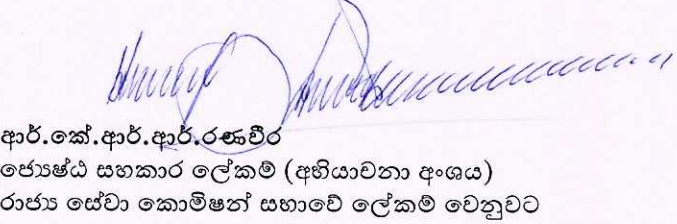 ආර්.කේ.ආර්.ආර්.රණවීර
ජ්‍යෙෂ්ඨ සහකාර ලේකම් (අභියාචනා අංශය)
රාජ්‍ය සේවා කොමිෂන් සභාවේ ලේකම් වෙනුවට